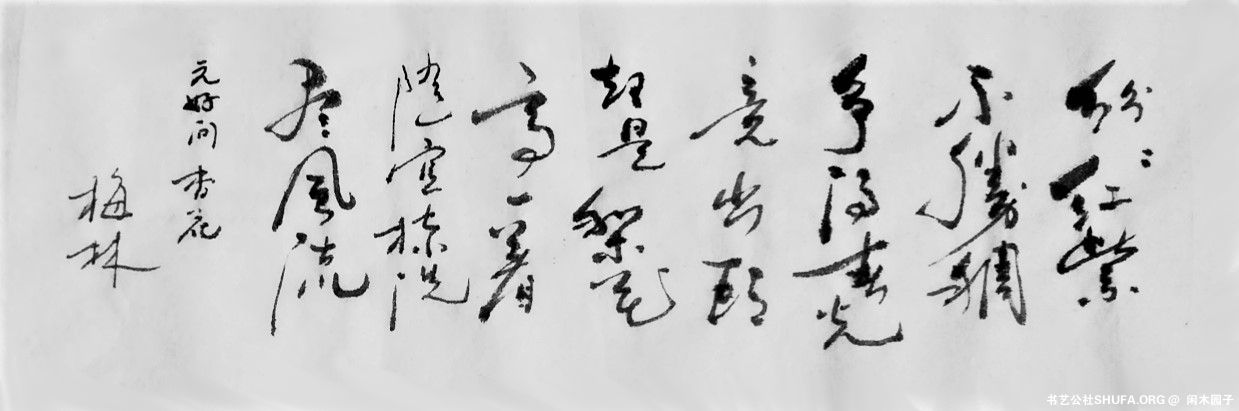 紛〻紅紫
不勝稠
爭得春光
竞出頭
却是梨花
高一着
隨宜梳洗
尽風流
元好问 杏花
梅林
书艺公社SHUFA.ORG @ 闲木圆子